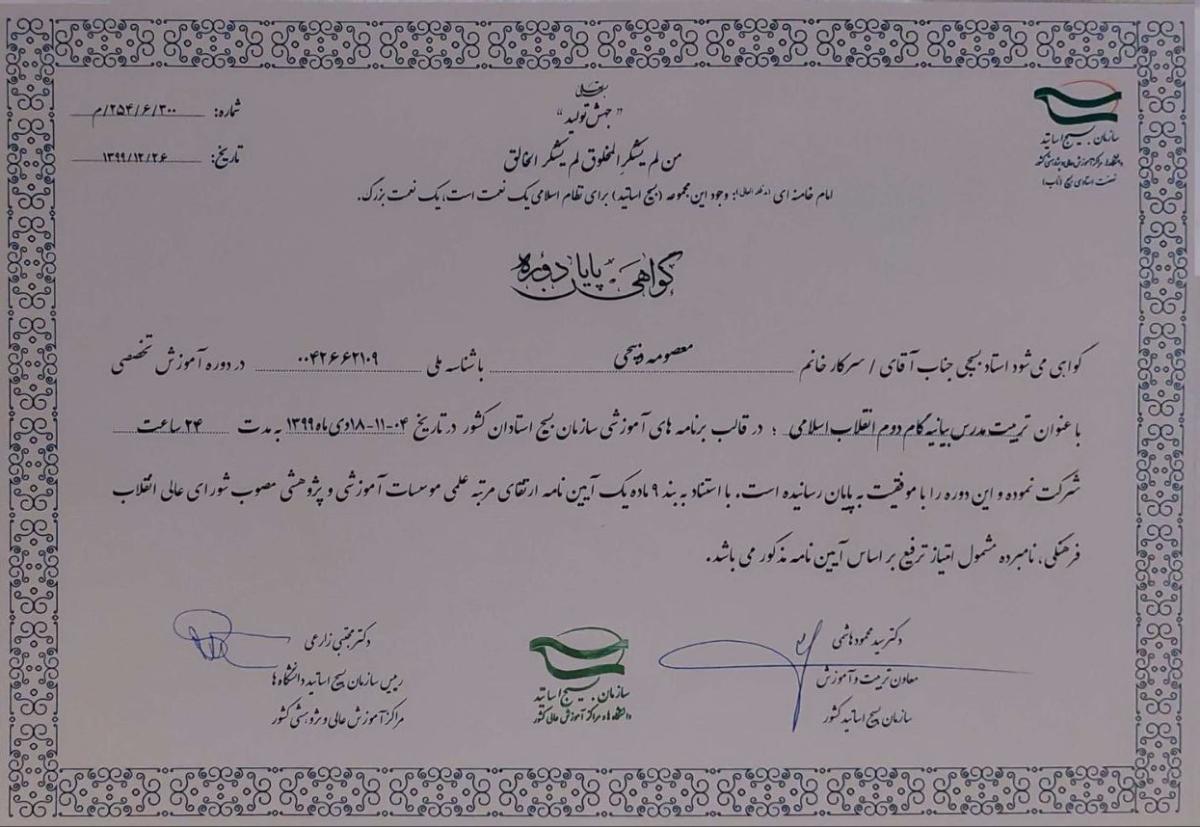 بسمه تعالی
شماره: ۳۰۰/۶/۲۵۴/م
"جهش تولید"
تاریخ: ۱۳۹۹/۱۲/۲۶
من لم یشکر المخلوق لم یشکر الخالق
امام خامنه ای (مدظله العالی): وجود این مجموعه (بسیج اساتید) برای نظام اسلامی یک نعمت است، یک نعمت بزرگ.
سازمان بسیج اساتید
دانشگاه‌ها و مراکز آموزش عالی و پژوهشی کشور
نهضت استادی بسیج (ناب)
گواهی پایان دوره
گواهی می شود استاد بسیجی جناب آقای / سرکار خانم معصومه ذبیحی با شناسه ملی ۰۰۴۲۶۶۲۱۰۹ در دوره آموزش تخصصی
با عنوان تربیت مدرس بیانیه گام دوم انقلاب اسلامی ؛ در قالب برنامه های آموزشی سازمان بسیج استادان کشور در تاریخ ۰۴-۱۱-۱۸دی ماه ۱۳۹۹ به مدت ۲۴ ساعت
شرکت نموده و این دوره را با موفقیت به پایان رسانیده است. با استناد به بند ۹ ماده یک آیین نامه ارتقای مرتبه علمی موسسات آموزشی و پژوهشی مصوب شورای عالی انقلاب
فرهنگی، نامبرده مشمول امتیاز ترفیع بر اساس آیین نامه مذکور می باشد.
دکتر سید محمود هاشمی
معاون تربیت و آموزش
سازمان بسیج اساتید کشور
سازمان بسیج اساتید
دانشگاه ها و مراکز آموزش عالی کشور
دکتر مجتبی زارعی
رییس سازمان بسیج اساتید دانشگاه ها
مراکز آموزش عالی و پژوهشی کشور